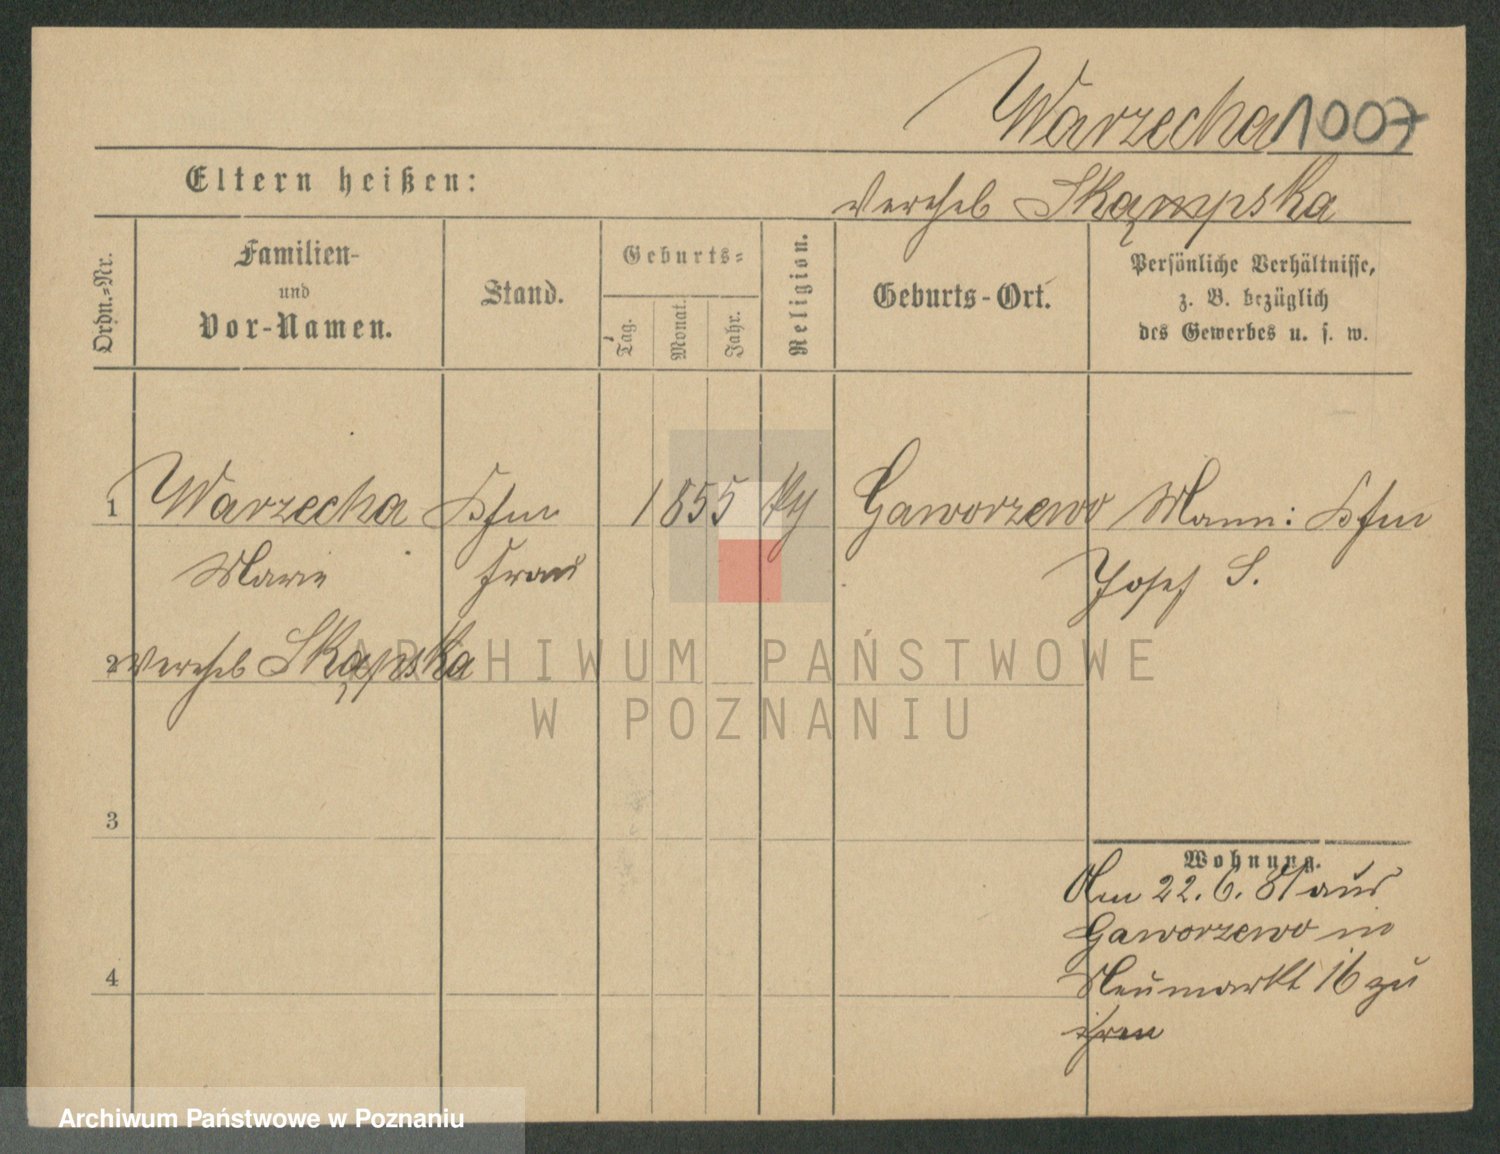 Warzecha 1007
Eltern heißen:
verehel Skąmpska
Ordn.-Nr.
Familien-
und
Vor-Namen.
Stand.
Geburts-
Tag.
Monat.
Jahr.
Religion.
Geburts-Ort.
Persönliche Verhältnisse,
z. B. bezüglich
des Gewerbes u. s. w.
1 Warzecha Kfm 1855 Gaworzewo Mann: Kfm
Marie Frau Josef S.
2 verehel Skąpska
3
4
Wohnung.
Am 22. 6. 81 aus
Gaworzewo in
Neumarkt 16 zu
ARCHIWUM PAŃSTWOWE
W POZNANIU
Archiwum Państwowe w Poznaniu